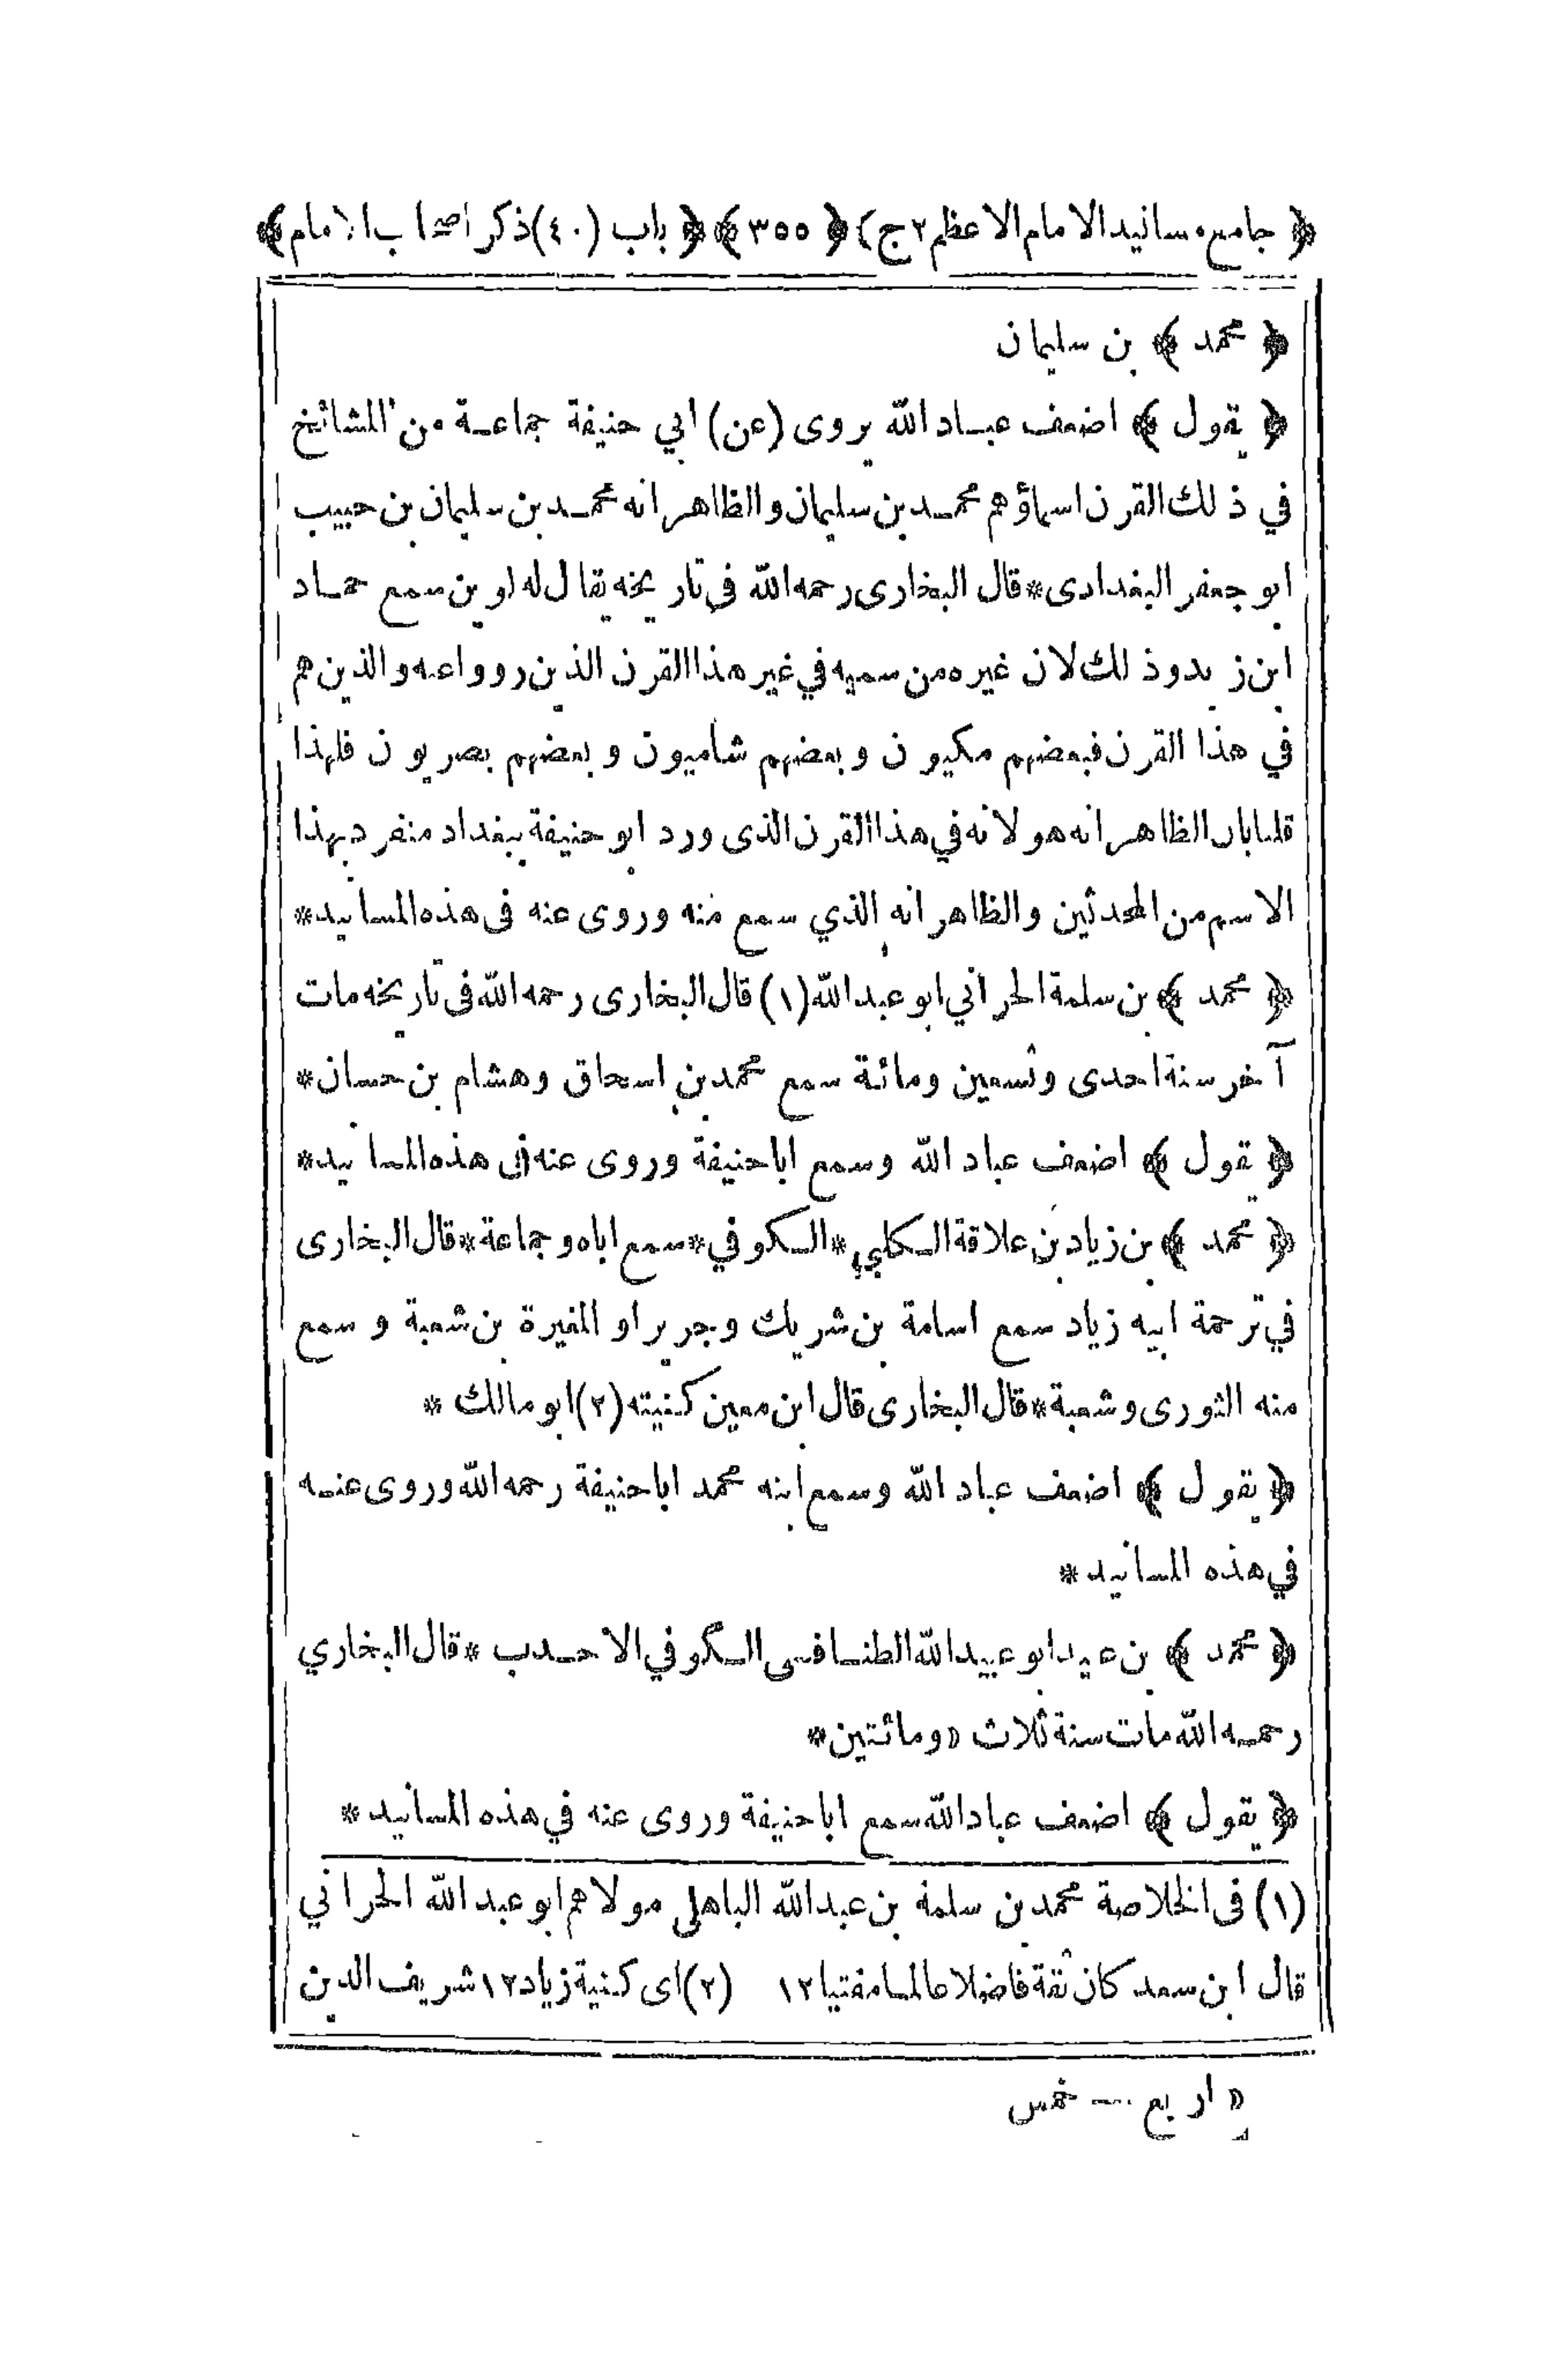 ﴿ جامع مسانيد الامام الاعظم ٢ ج ﴾ ﴿ ٣٥٥ ﴾ ﴿ باب (٤٠) ذكر اصحاب الامام ﴾
﴿ محمد ﴾ بن سليمان
﴿ يقول ﴾ اضعف عباد الله يروى (عن) ابي حنيفة جماعة من المشائخ
في ذلك القرن اسماؤهم محمد بن سليمان والظاهر انه محمد بن سليمان بن حبيب
ابو جعفر البغدادى * قال البخارى رحمه الله فى تاريخه يقال له لوين سمع حماد
ابن زيد وذلك لان غيره من سميه في غير هذا القرن الذين رووا عنه والذين هم
في هذا القرن فبعضهم مكيون وبعضهم شاميون وبعضهم بصريون فلهذا
قلنا بان الظاهر انه هو لانه في هذا القرن الذى ورد ابو حنيفة ببغداد منفرد بهذا
الاسم من المحدثين والظاهر انه الذي سمع منه وروى عنه فى هذه المسانيد *
﴿ محمد ﴾ بن سلمة الحراني ابو عبد الله (١) قال البخارى رحمه الله فى تاريخه مات
آخر سنة احدى وتسعين ومائة سمع محمد بن اسحاق وهشام بن حسان *
﴿ يقول ﴾ اضعف عباد الله وسمع ابا حنيفة وروى عنه فى هذه المسانيد *
﴿ محمد ﴾ بن زياد بن علاقة الكلبي * الكوفي * سمع اباه وجماعة * قال البخارى
في ترجمة ابيه زياد سمع اسامة بن شريك وجريرا و المغيرة بن شعبة و سمع
منه الثورى وشعبة * قال البخارى قال ابن معين كنيته (٢) ابو مالك *
﴿ يقول ﴾ اضعف عباد الله وسمع ابنه محمد ابا حنيفة رحمه الله وروى عنه
في هذه المسانيد *
﴿ محمد ﴾ بن عبيد ابو عبيد الله الطنافسى الكوفي الاحدب * قال البخاري
رحمه الله مات سنة ثلاث « ومائتين *
﴿ يقول ﴾ اضعف عباد الله سمع ابا حنيفة وروى عنه في هذه المسانيد *
(١) فى الخلاصة محمد بن سلمة بن عبد الله الباهلى مولاهم ابو عبد الله الحراني
قال ابن سعد كان ثقة فاضلا عالما مفتيا ١٢ (٢) اى كنية زياد ١٢ شريف الدين
« اربع — خمس